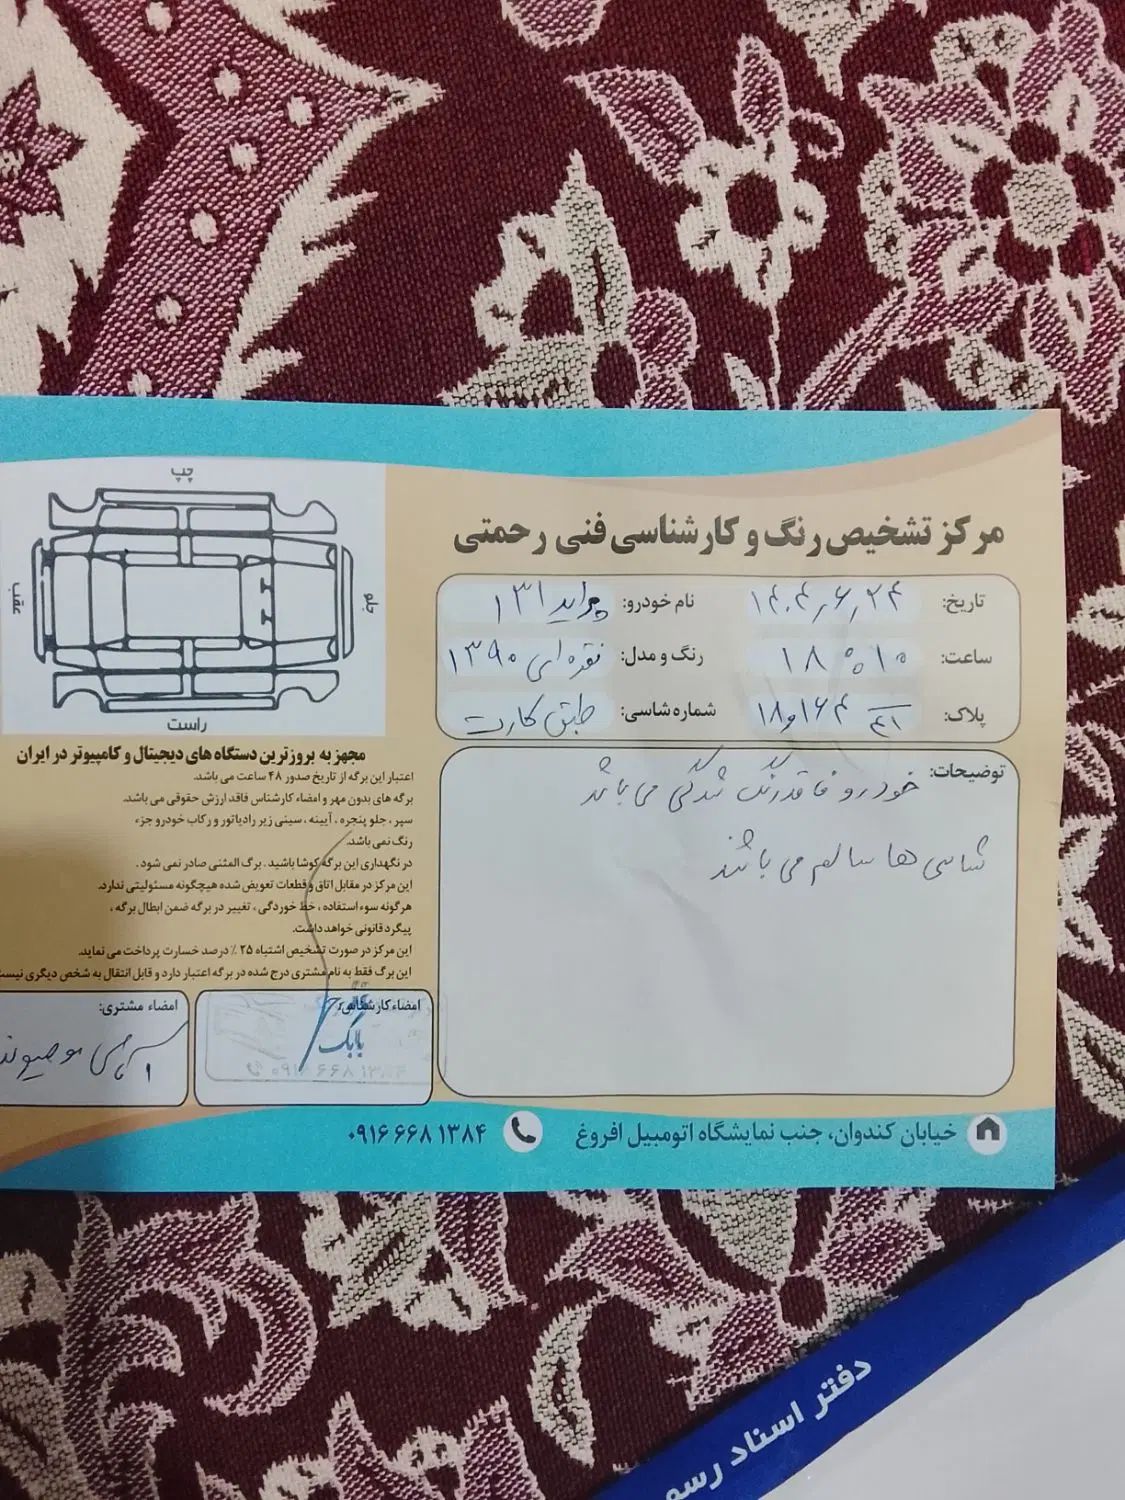 مرکز تشخیص رنگ و کارشناسی فنی رحمتی
تاریخ: ۱۴۰۴,۶,۲۴ نام خودرو: پراید ۱۳۱
ساعت: ۱۸:۱۰ رنگ و مدل: نقره ای ۱۳۹۰
پلاک: ۱۸و۱۶۴ شماره شاسی: طبق کارت
توضیحات: خودرو فاقد رنگ شدگی می باشد
شاسی ها سالم می باشند
چپ
جلو
عقب
راست
مجهز به بروزترین دستگاه های دیجیتال و کامپیوتر در ایران
اعتبار این برگه از تاریخ صدور ۴۸ ساعت می باشد.
برگه های بدون مهر و امضاء کارشناس فاقد ارزش حقوقی می باشد.
سپر، جلو پنجره، آیینه، سینی زیر رادیاتور و رکاب خودرو جزء
رنگ نمی باشد.
در نگهداری این برگه کوشا باشید. برگ المثنی صادر نمی شود.
این مرکز در مقابل اتاق و قطعات تعویض شده هیچگونه مسئولیتی ندارد.
هرگونه سوء استفاده، خط خوردگی، تغییر در برگه ضمن ابطال برگه،
پیگرد قانونی خواهد داشت.
این مرکز در صورت تشخیص اشتباه ۲۵ ٪ درصد خسارت پرداخت می نماید.
این برگ فقط به نام مشتری درج شده در برگه اعتبار دارد و قابل انتقال به شخص دیگری نیست
امضاء کارشناس:
بابک
امضاء مشتری:
خیابان کندوان، جنب نمایشگاه اتومبیل افروغ
۰۹۱۶۶۶۸۱۳۸۴
دفتر اسناد رسم